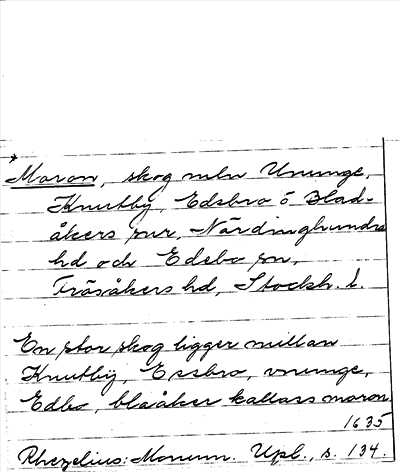 Moron, skog mln Ununge,
Knutby, Edsbro o Blad-
åkers snr, Närdinghundra
hd och Edebo sn,
Frösåkers hd, Stockh. l.
En stor skog ligger millan
Knutbÿ, Essbro, vnunge,
Edbo, blaåker kallass moron
1635
Rhezelius: Monum. Upl., s. 134.